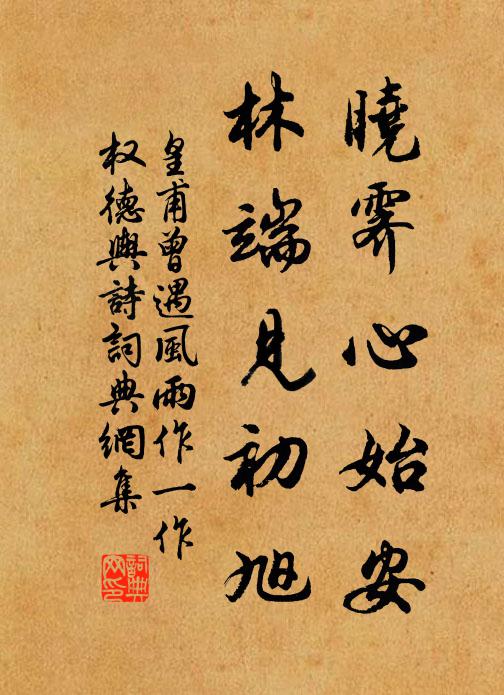 曉霽心始安
林端見初旭
皇甫曾遇風雨作一作
权德輿詩詞典網集
詞典
网印